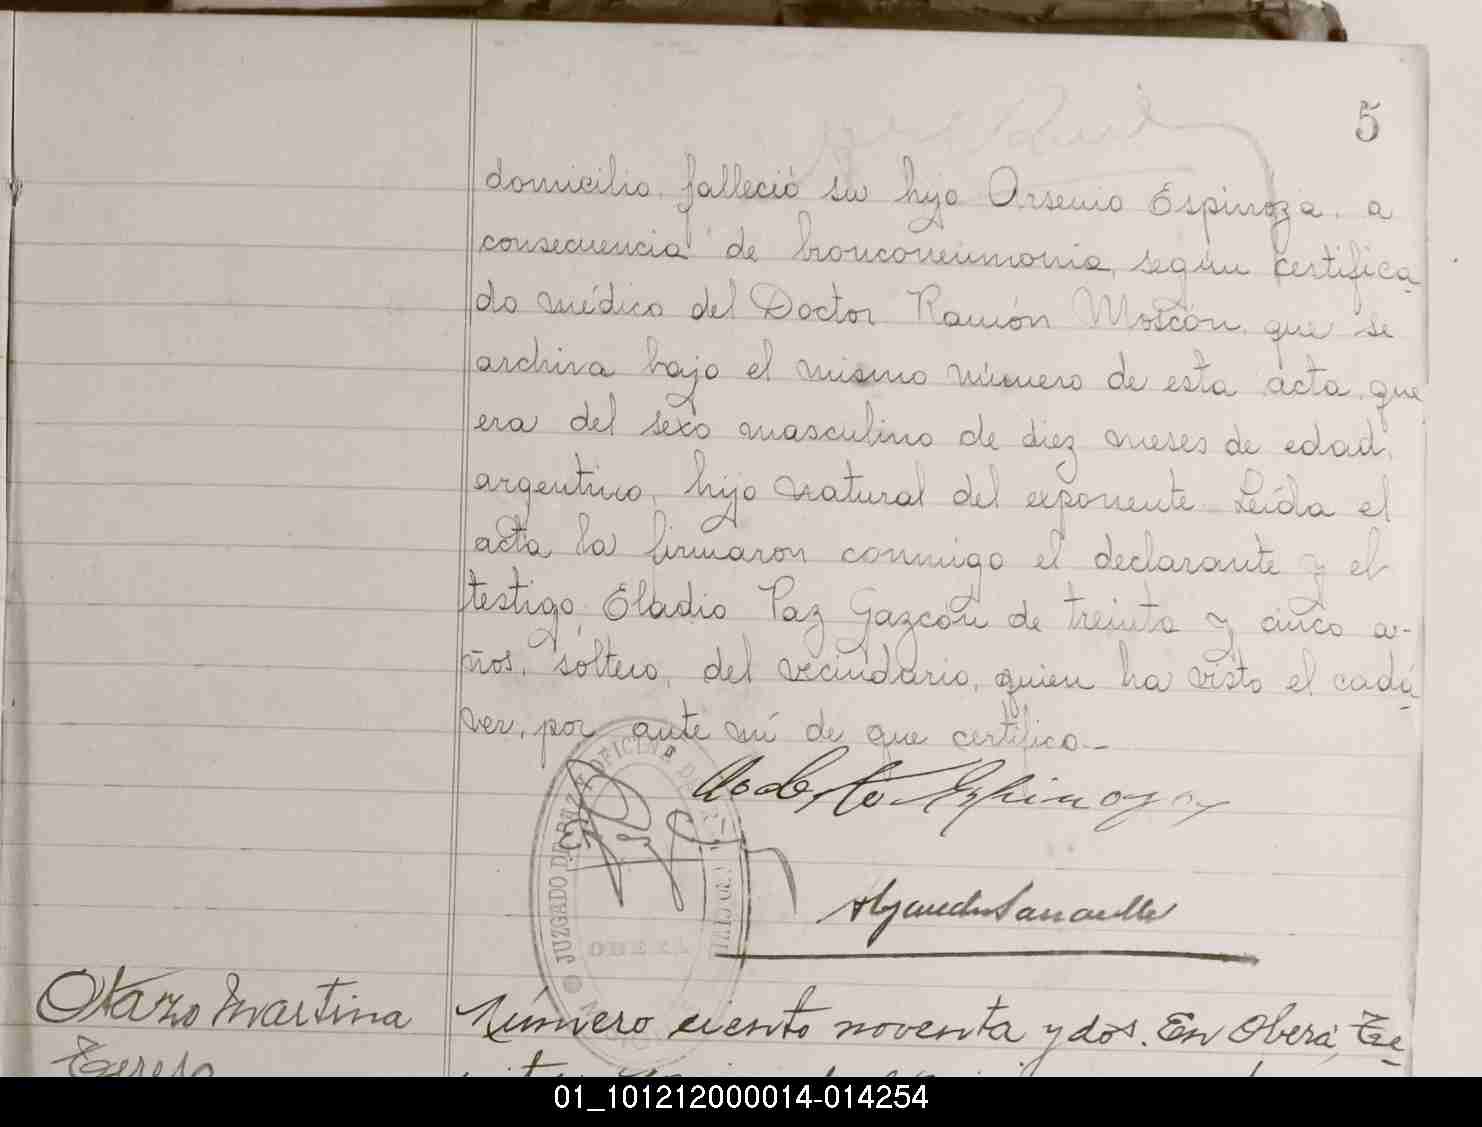 5
domicilio, falleció su hijo Arsenio Espinoza, a
consecuencia de bronconeumonia, según certifica-
do médico del Doctor Ramón Moscón, que se
archiva bajo el mismo número de esta acta, que
era del sexo masculino de diez meses de edad,
argentino, hijo natural del exponente. Leída el
acta, la firmaron conmigo el declarante y el
testigo, Eladio Paz Gazcón de treinta y cinco a-
ños, soltero, del vecindario, quien ha visto el cadá-
ver, por ante mí de que certifico.-
Espinoza
JUZGADO DE PAZ Y OFICINA DEL
OBERA
Otazo Martina
Teresa
Número ciento noventa y dos. En Oberá, Te-
01_101212000014-014254